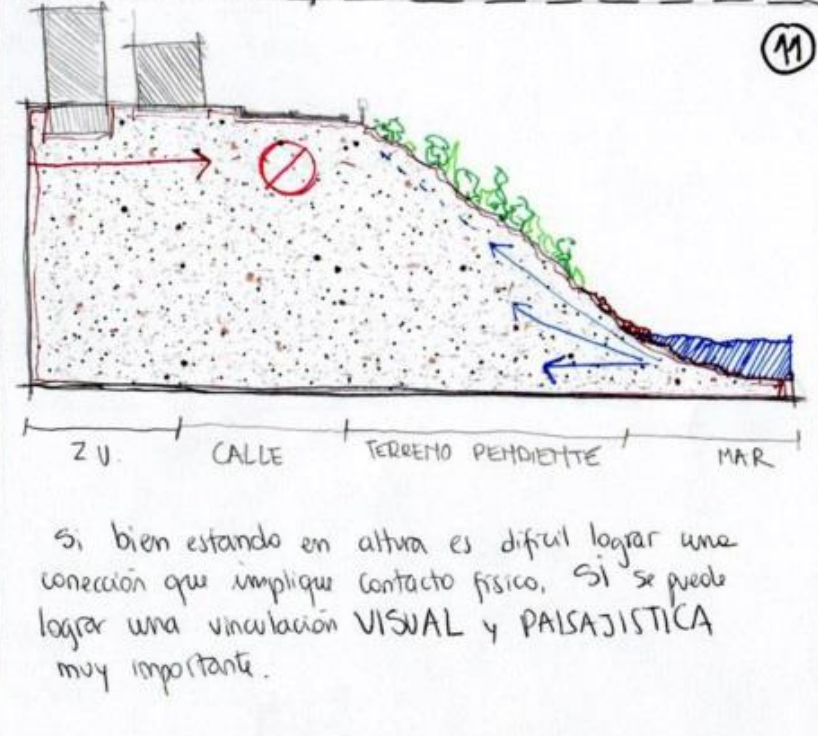 11
Z U. CALLE TERRENO PENDIENTE MAR
Si bien estando en altura es dificil lograr una
conección que implique contacto físico, SI se puede
lograr una vinculación VISUAL y PAISAJISTICA
muy importante.